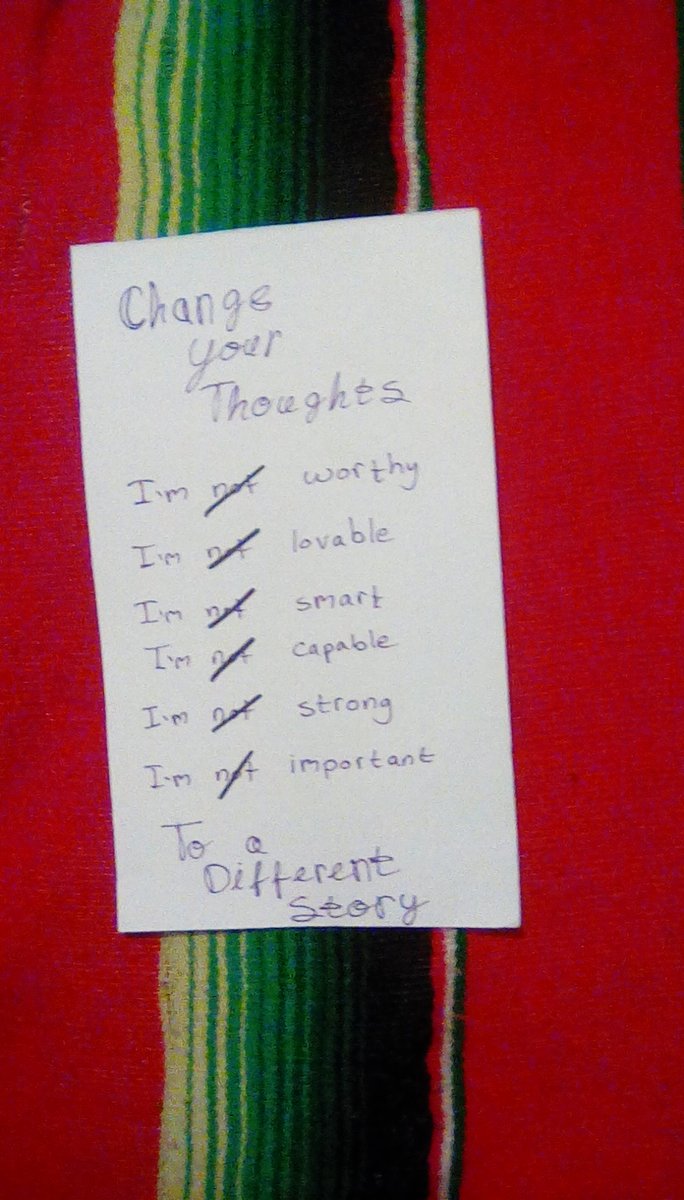 Change
your
Thoughts
I'm not worthy
I'm not lovable
I'm not smart
I'm not capable
I'm not strong
I'm not important
To a
Different
Story